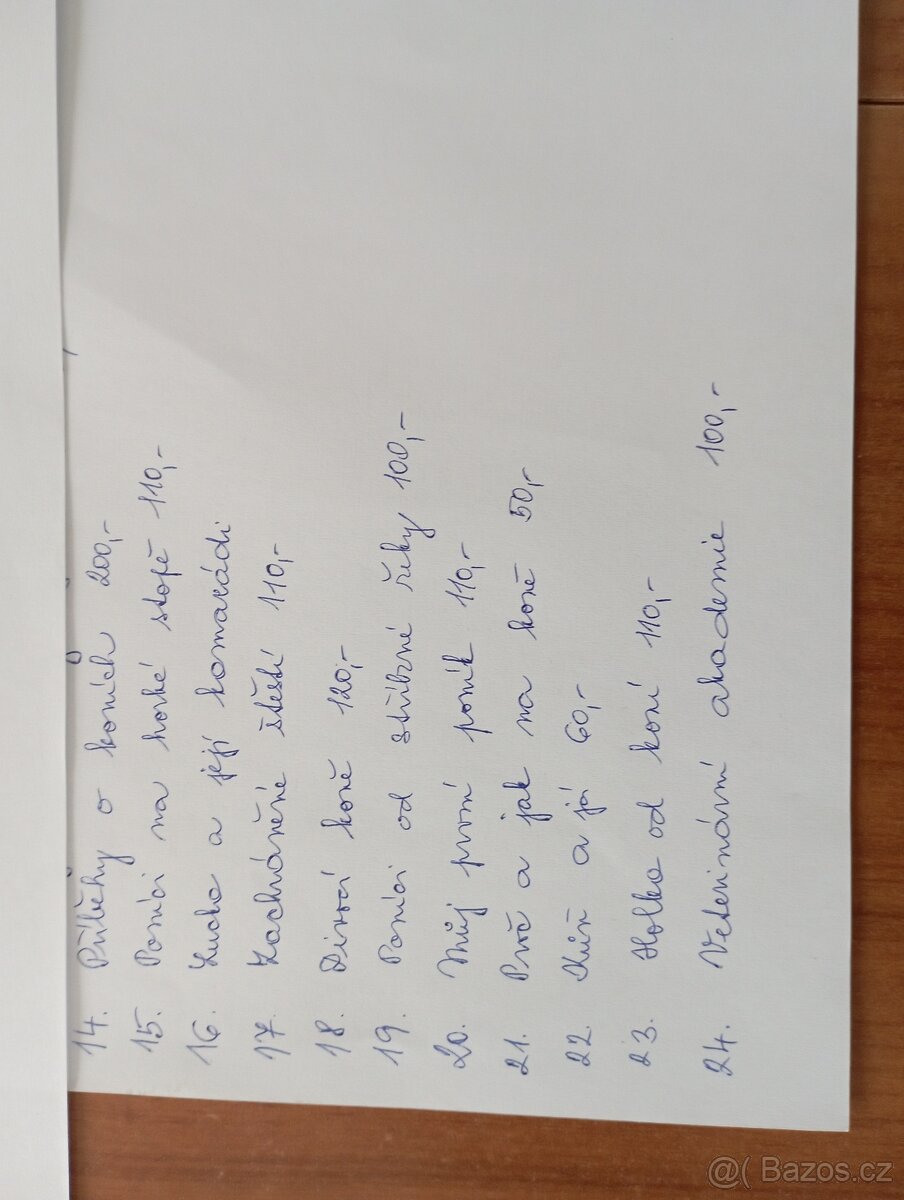 14. Příběhy o koních 200,-
15. Poníci na horké stopě 110,-
16. Lucka a její kamarádi
17. Zachráněné štěstí 110,-
18. Divocí koně 120,-
19. Poníci od stříbrné řeky 100,-
20. Můj první poník 110,-
21. Proč a jak na koně 50,-
22 Kůň a já 60,-
23. Holka od koní 110,-
24. Veterinární akademie 100,-
@( Bazos.cz